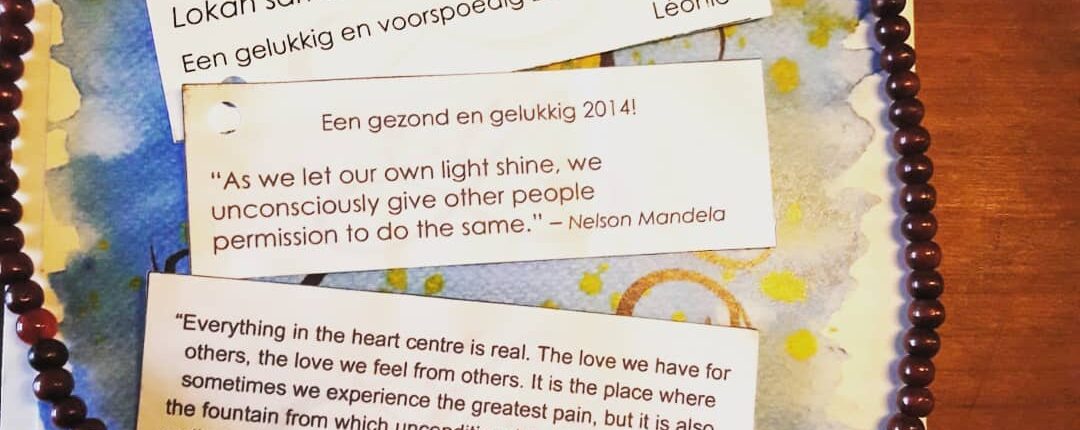 Lokah
Een gelukkig en voorspoedig
Léonie
Een gezond en gelukkig 2014!
“As we let our own light shine, we
unconsciously give other people
permission to do the same.” – Nelson Mandela
“Everything in the heart centre is real. The love we have for
others, the love we feel from others. It is the place where
sometimes we experience the greatest pain, but it is also
the fountain from which